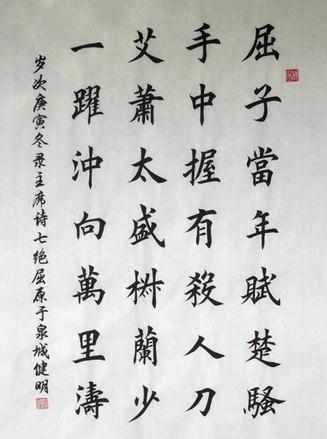 屈子當年賦楚騷
手中握有殺人刀
艾蕭太盛椒蘭少
一躍沖向萬里濤
岁次庚寅冬录主席诗七绝屈原于泉城健明